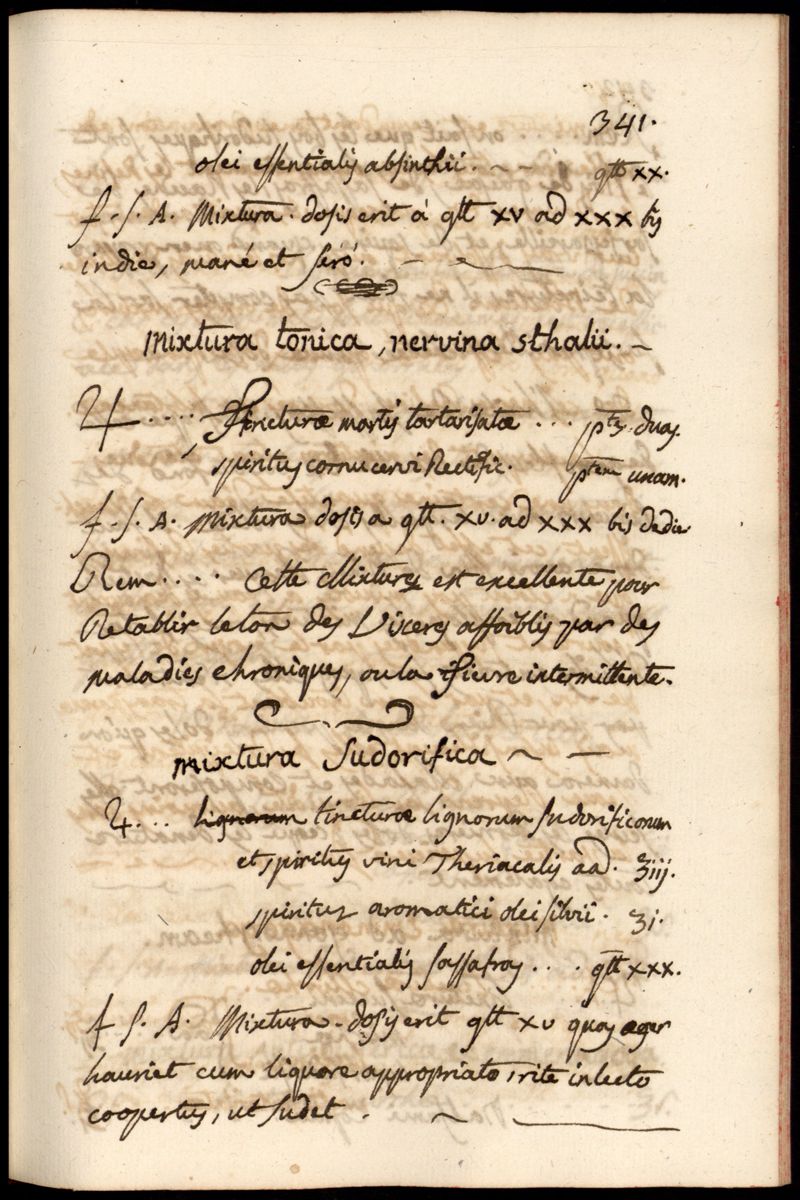 341.
olei essentialis absinthii. gtt xx.
f. S. A. Mixtura. dosis erit á gtt xv ad xxx bis
indie, mané et seró.
mixtura tonica, nervina sthalii.
♃ .... Tincturæ martis tartarisatæ ... ptes. duas.
spiritus cornu cervi Rectific. ptem unam.
f. S. A. Mixtura dosis a gtt. xv. ad xxx bis de die
Rem .... Cette Mixture est excellente pour
Retablir le ton des Visceres affoiblis par des
maladies chroniques, ou la fievre intermittente.
mixtura Sudorifica
♃ ... lignorum tincturæ lignorum sudorificorum
et spiritus vini Theriacalis aad. ʒiij.
spiritus aromatici olei silvii. ʒi.
olei essentialis sassafras ... gtt xxx.
f S. A. Mixtura. dosis erit gtt xv quas æger
hauriet cum liquore appropriato, rite in lecto
coopertus, ut sudet.